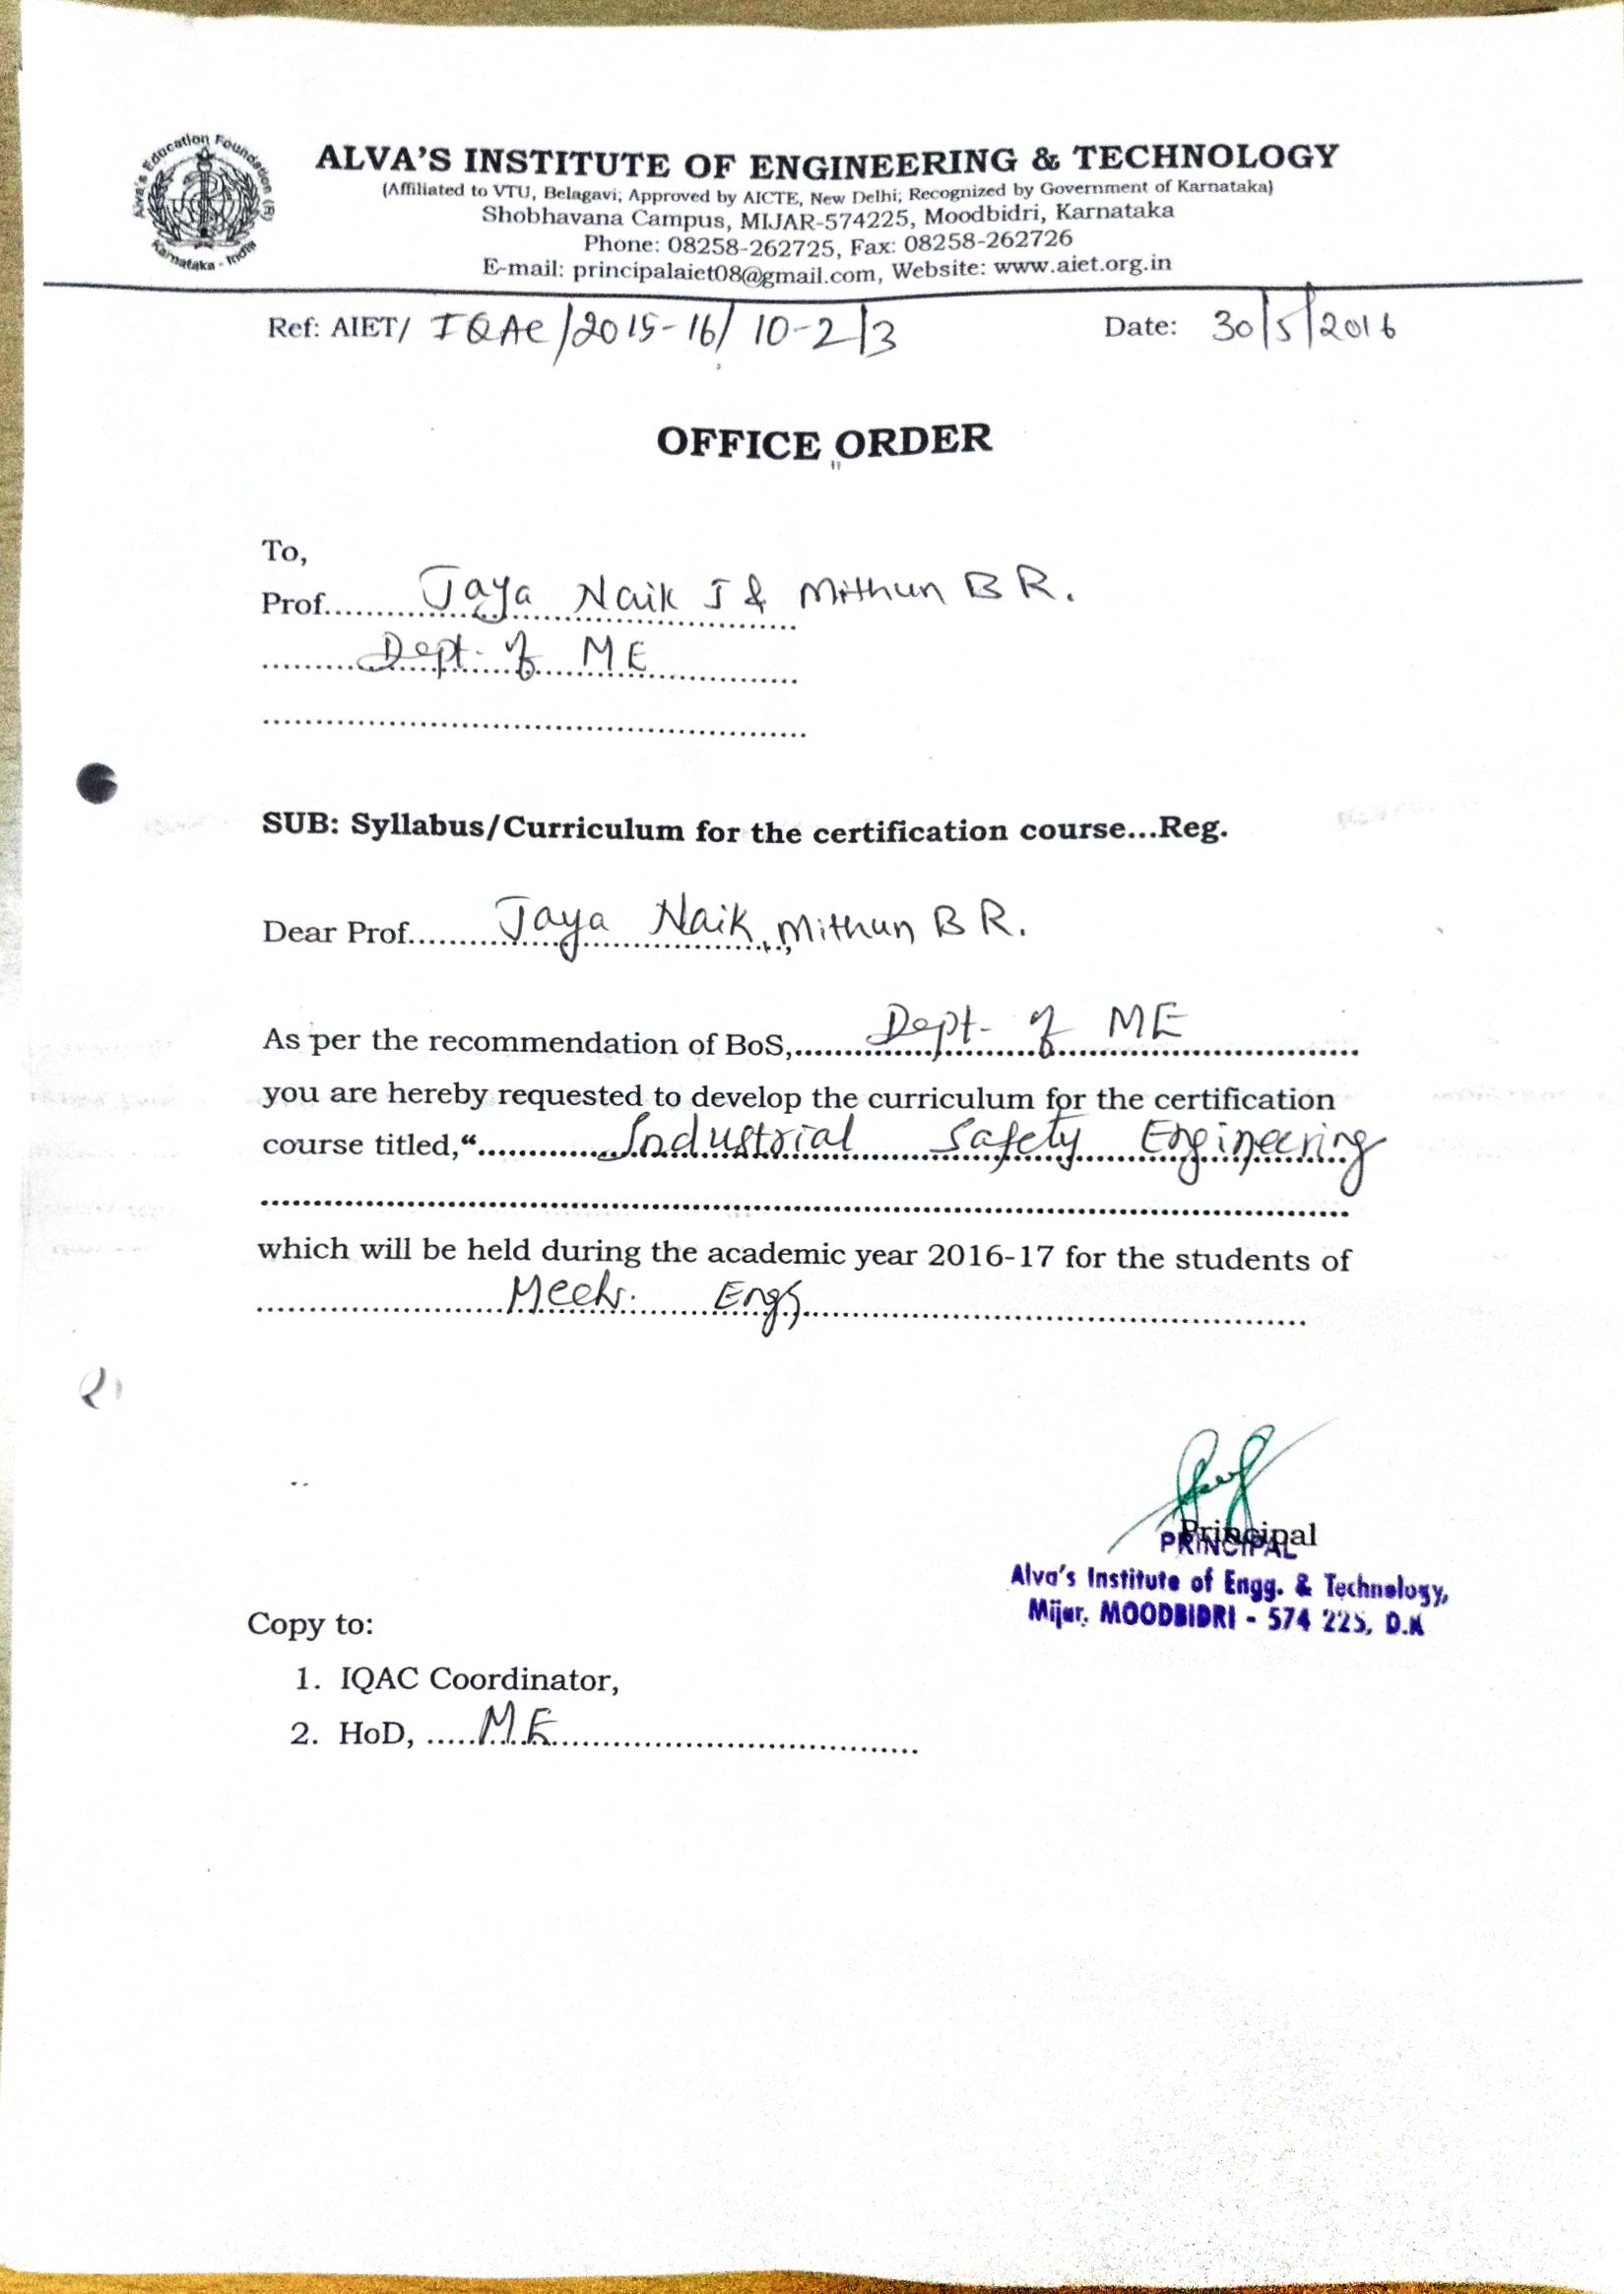 Alva's Education Foundation (R)
Karnataka - India
ALVA'S INSTITUTE OF ENGINEERING & TECHNOLOGY
(Affiliated to VTU, Belagavi; Approved by AICTE, New Delhi; Recognized by Government of Karnataka)
Shobhavana Campus, MIJAR-574225, Moodbidri, Karnataka
Phone: 08258-262725, Fax: 08258-262726
E-mail: principalaiet08@gmail.com, Website: www.aiet.org.in
Ref: AIET/ IQAC/2015-16/ 10-2/3 Date: 30/5/2016
OFFICE ORDER
To,
Prof. Jaya Naik J & Mithun B R.
Dept. of ME
SUB: Syllabus/Curriculum for the certification course...Reg.
Dear Prof. Jaya Naik, Mithun B R.
As per the recommendation of BoS, Dept. of ME
you are hereby requested to develop the curriculum for the certification
course titled,“ Industrial Safety Engineering
which will be held during the academic year 2016-17 for the students of
Mech. Engg
Principal
PRINCIPAL
Alva's Institute of Engg. & Technology,
Mijar. MOODBIDRI - 574 225, D.K
Copy to:
1. IQAC Coordinator,
2. HoD, M.E